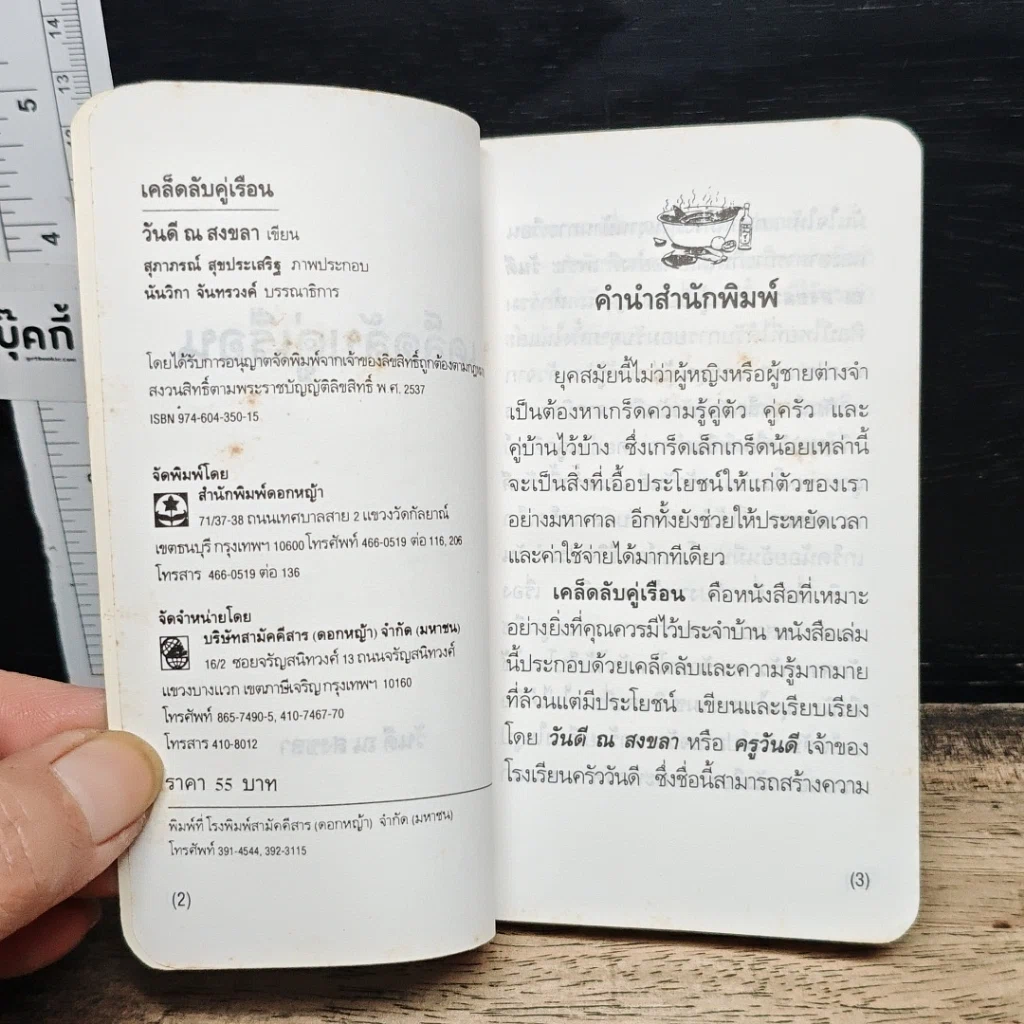 14
13
5
4
บุ๊คกี้
เคล็ดลับคู่เรือน
วันดี ณ สงขลา เขียน
สุภาภรณ์ สุขประเสริฐ ภาพประกอบ
นันวิกา จันทรวงค์ บรรณาธิการ
โดยได้รับการอนุญาตจัดพิมพ์จากเจ้าของลิขสิทธิ์ถูกต้องตามกฎหมาย
สงวนสิทธิ์ตามพระราชบัญญัติลิขสิทธิ์ พ.ศ. 2537
ISBN 974-604-350-15
จัดพิมพ์โดย
สำนักพิมพ์ดอกหญ้า
71/37-38 ถนนเทศบาลสาย 2 แขวงวัดกัลยาณ์
เขตธนบุรี กรุงเทพฯ 10600 โทรศัพท์ 466-0519 ต่อ 116, 206
โทรสาร 466-0519 ต่อ 136
จัดจำหน่ายโดย
บริษัทสามัคคีสาร (ดอกหญ้า) จำกัด (มหาชน)
16/2 ซอยจรัญสนิทวงศ์ 13 ถนนจรัญสนิทวงศ์
แขวงบางแวก เขตภาษีเจริญ กรุงเทพฯ 10160
โทรศัพท์ 865-7490-5, 410-7467-70
โทรสาร 410-8012
ราคา 55 บาท
พิมพ์ที่ โรงพิมพ์สามัคคีสาร (ดอกหญ้า) จำกัด (มหาชน)
โทรศัพท์ 391-4544, 392-3115
(2)
คำนำสำนักพิมพ์
ยุคสมัยนี้ไม่ว่าผู้หญิงหรือผู้ชายต่างจำ
เป็นต้องหาเกร็ดความรู้คู่ตัว คู่ครัว และ
คู่บ้านไว้บ้าง ซึ่งเกร็ดเล็กเกร็ดน้อยเหล่านี้
จะเป็นสิ่งที่เอื้อประโยชน์ให้แก่ตัวของเรา
อย่างมหาศาล อีกทั้งยังช่วยให้ประหยัดเวลา
และค่าใช้จ่ายได้มากทีเดียว
เคล็ดลับคู่เรือน คือหนังสือที่เหมาะ
อย่างยิ่งที่คุณควรมีไว้ประจำบ้าน หนังสือเล่ม
นี้ประกอบด้วยเคล็ดลับและความรู้มากมาย
ที่ล้วนแต่มีประโยชน์ เขียนและเรียบเรียง
โดย วันดี ณ สงขลา หรือ ครูวันดี เจ้าของ
โรงเรียนครัววันดี ซึ่งชื่อนี้สามารถสร้างความ
(3)